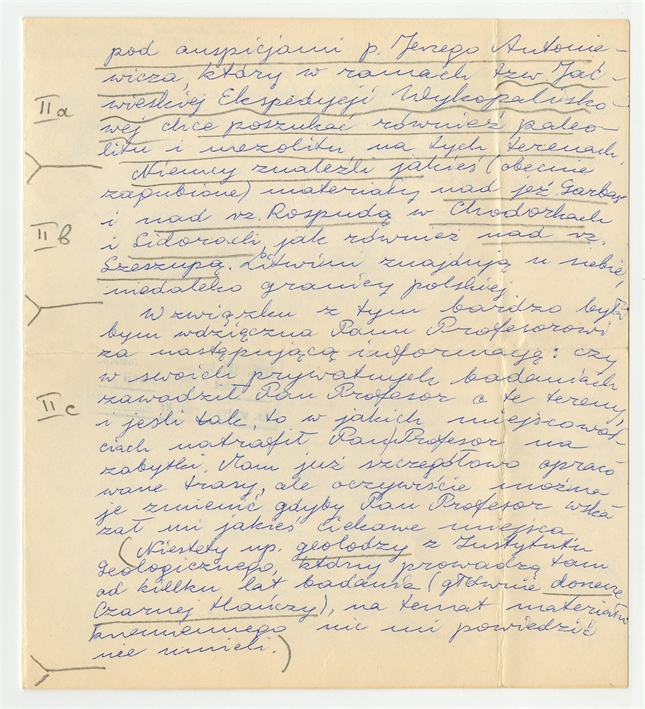 pod auspicjami p. Jerzego Antonie-
wicza, który w ramach tzw. Jać-
wieskiej Ekspedycji Wykopalisko-
wej chce poszukać również paleo-
litu i mezolitu na tych terenach.
Niemcy znaleźli jakieś (obecnie
zagubione) materiały nad jez. Garbaś
i nad rz. Rospudą w Chodorkach
i Sidorach, jak również nad rz.
Szeszupą. Litwini znajdują u siebie,
niedaleko granicy polskiej.
W związku z tym bardzo była
bym wdzięczna Panu Profesorowi
za następującą informację: czy
w swoich prywatnych badaniach
zawadził Pan Profesor o te tereny,
i jeśli tak, to w jakich miejscowoś-
ciach natrafił Pan Profesor na
zabytki. Mam już szczegółowo opraco
wane trasy, ale oczywiście można
je zmienić gdyby Pan Profesor wska
zał mi jakieś ciekawe miejsca
(Niestety np. geolodzy z Instytutu
Geologicznego, którzy prowadzą tam
od kilku lat badania (głównie dorzecze
Czarnej Hańczy), na temat materiału
krzemiennego nic mi powiedzieć
nie umieli.)
IIa
IIb
IIc